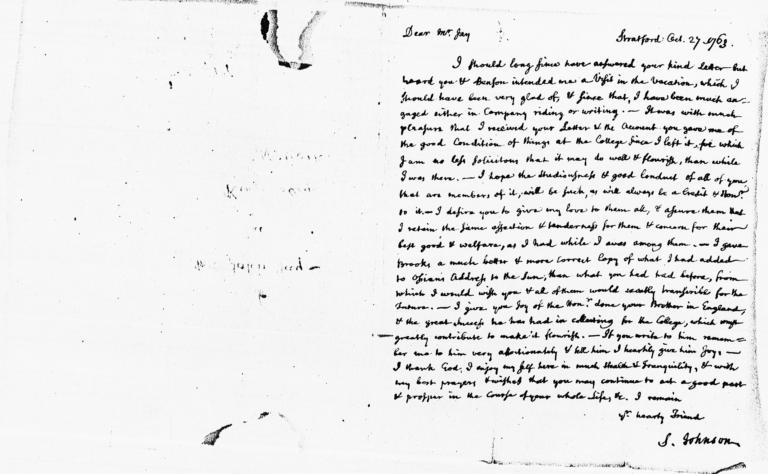 Dear Mr. Jay
Stratford Oct. 27. 1763.
I should long since have answered your kind Letter but
heard you & Benson intended me a Visit in the Vacation, which I
should have been very glad of, & since that, I have been much en-
gaged either in Company riding or writing. — It was with much
pleasure that I received your Letter & the Account you gave me of
the good Condition of things at the College since I left it, for which
I am no less solicitous that it may do well & flourish, than while
I was there. — I hope the Studiousness & good Conduct of all of you
that are members of it, will be such, as will always be a Credit & Honr.
to it. — I desire you to give my love to them all, & assure them that
I retain the same affection & tenderness for them & concern for their
best good & welfare, as I had while I was among them. — I gave
Brooks a much better & more correct Copy of what I had added
to Ossian's Address to the Sun, than what you had had before, from
which I would wish you & all of them would exactly transcribe for the
future. — I give you Joy of the Honr. done your Brother in England,
& the great success he has had in collecting for the College, which must
greatly contribute to make it flourish. — If you write to him remem-
ber me to him very affectionately & tell him I heartily give him Joy. —
I thank God, I enjoy my self here in much Health & Tranquility, & with
my best prayers & wishes that you may continue to act a good part
& prosper in the Course of your whole Life, &c. I remain
yr. hearty Friend
S. Johnson